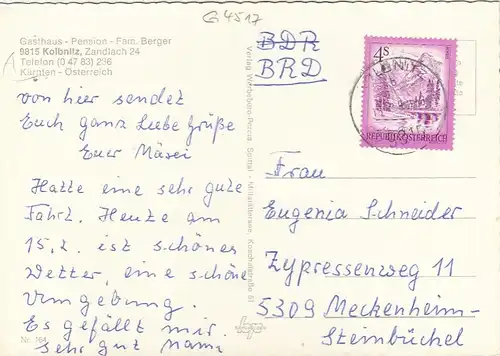 G 4517
Gasthaus - Pension - Fam. Berger
9815 Kolbnitz, Zandlach 24
Telefon (0 47 83) 236
Kärnten - Österreich
von hier sendet
Euch ganz Liebe Grüße
Euer Mäsei
Hatte eine sehr gute
Fahrt. Heute am
15.7. ist schönes
Wetter, eine schöne
Umgebung.
Es gefällt mir.
sehr gut Mama
Nr. 164
BDR
BRD
4S
REPUBLIK ÖSTERREICH
Frau
Eugenia Schneider
Zypressenweg 11
5309 Meckenheim-
Steinbüchel